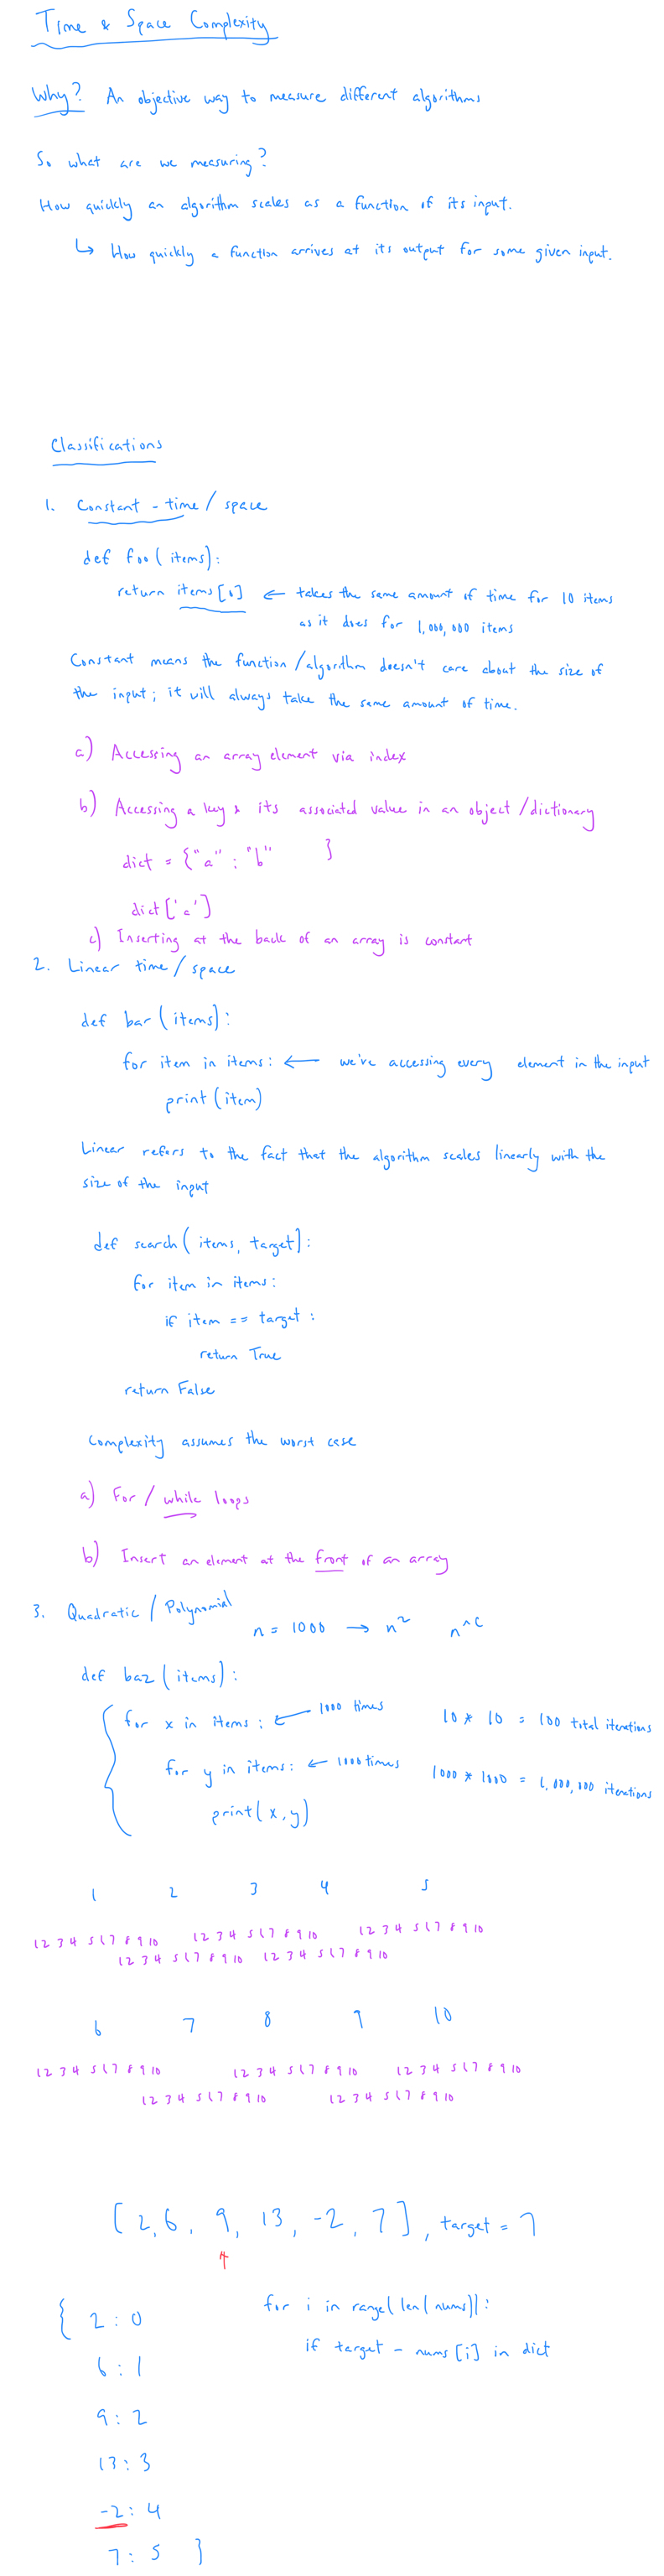 Time & Space Complexity
Why? An objective way to measure different algorithms
So what are we measuring?
How quickly an algorithm scales as a function of its input.
↳ How quickly a function arrives at its output for some given input.
Classifications
1. Constant - time / space
def foo(items):
return items[0] ← takes the same amount of time for 10 items
as it does for 1,000,000 items
Constant means the function/algorithm doesn't care about the size of
the input; it will always take the same amount of time.
a) Accessing an array element via index
b) Accessing a key & its associated value in an object/dictionary
dict = {"a" : "b" }
dict['a']
c) Inserting at the back of an array is constant
2. Linear time / space
def bar(items):
for item in items: ← we're accessing every element in the input
print(item)
Linear refers to the fact that the algorithm scales linearly with the
size of the input
def search(items, target):
for item in items:
if item == target:
return True
return False
Complexity assumes the worst case
a) For / while loops
b) Insert an element at the front of an array
3. Quadratic / Polynomial
n = 1000 → n² n^c
def baz(items):
for x in items: ← 1000 times 10 * 10 = 100 total iterations
for y in items: ← 1000 times 1000 * 1000 = 1,000,000 iterations
print(x,y)
1 2 3 4 5
1 2 3 4 5 6 7 8 9 10 1 2 3 4 5 6 7 8 9 10 1 2 3 4 5 6 7 8 9 10
1 2 3 4 5 6 7 8 9 10 1 2 3 4 5 6 7 8 9 10
6 7 8 9 10
1 2 3 4 5 6 7 8 9 10 1 2 3 4 5 6 7 8 9 10 1 2 3 4 5 6 7 8 9 10
1 2 3 4 5 6 7 8 9 10 1 2 3 4 5 6 7 8 9 10
[2, 6, 9, 13, -2, 7], target = 7
{ 2 : 0 for i in range(len(nums)):
6 : 1 if target - nums[i] in dict
9 : 2
13 : 3
-2 : 4
7 : 5 }